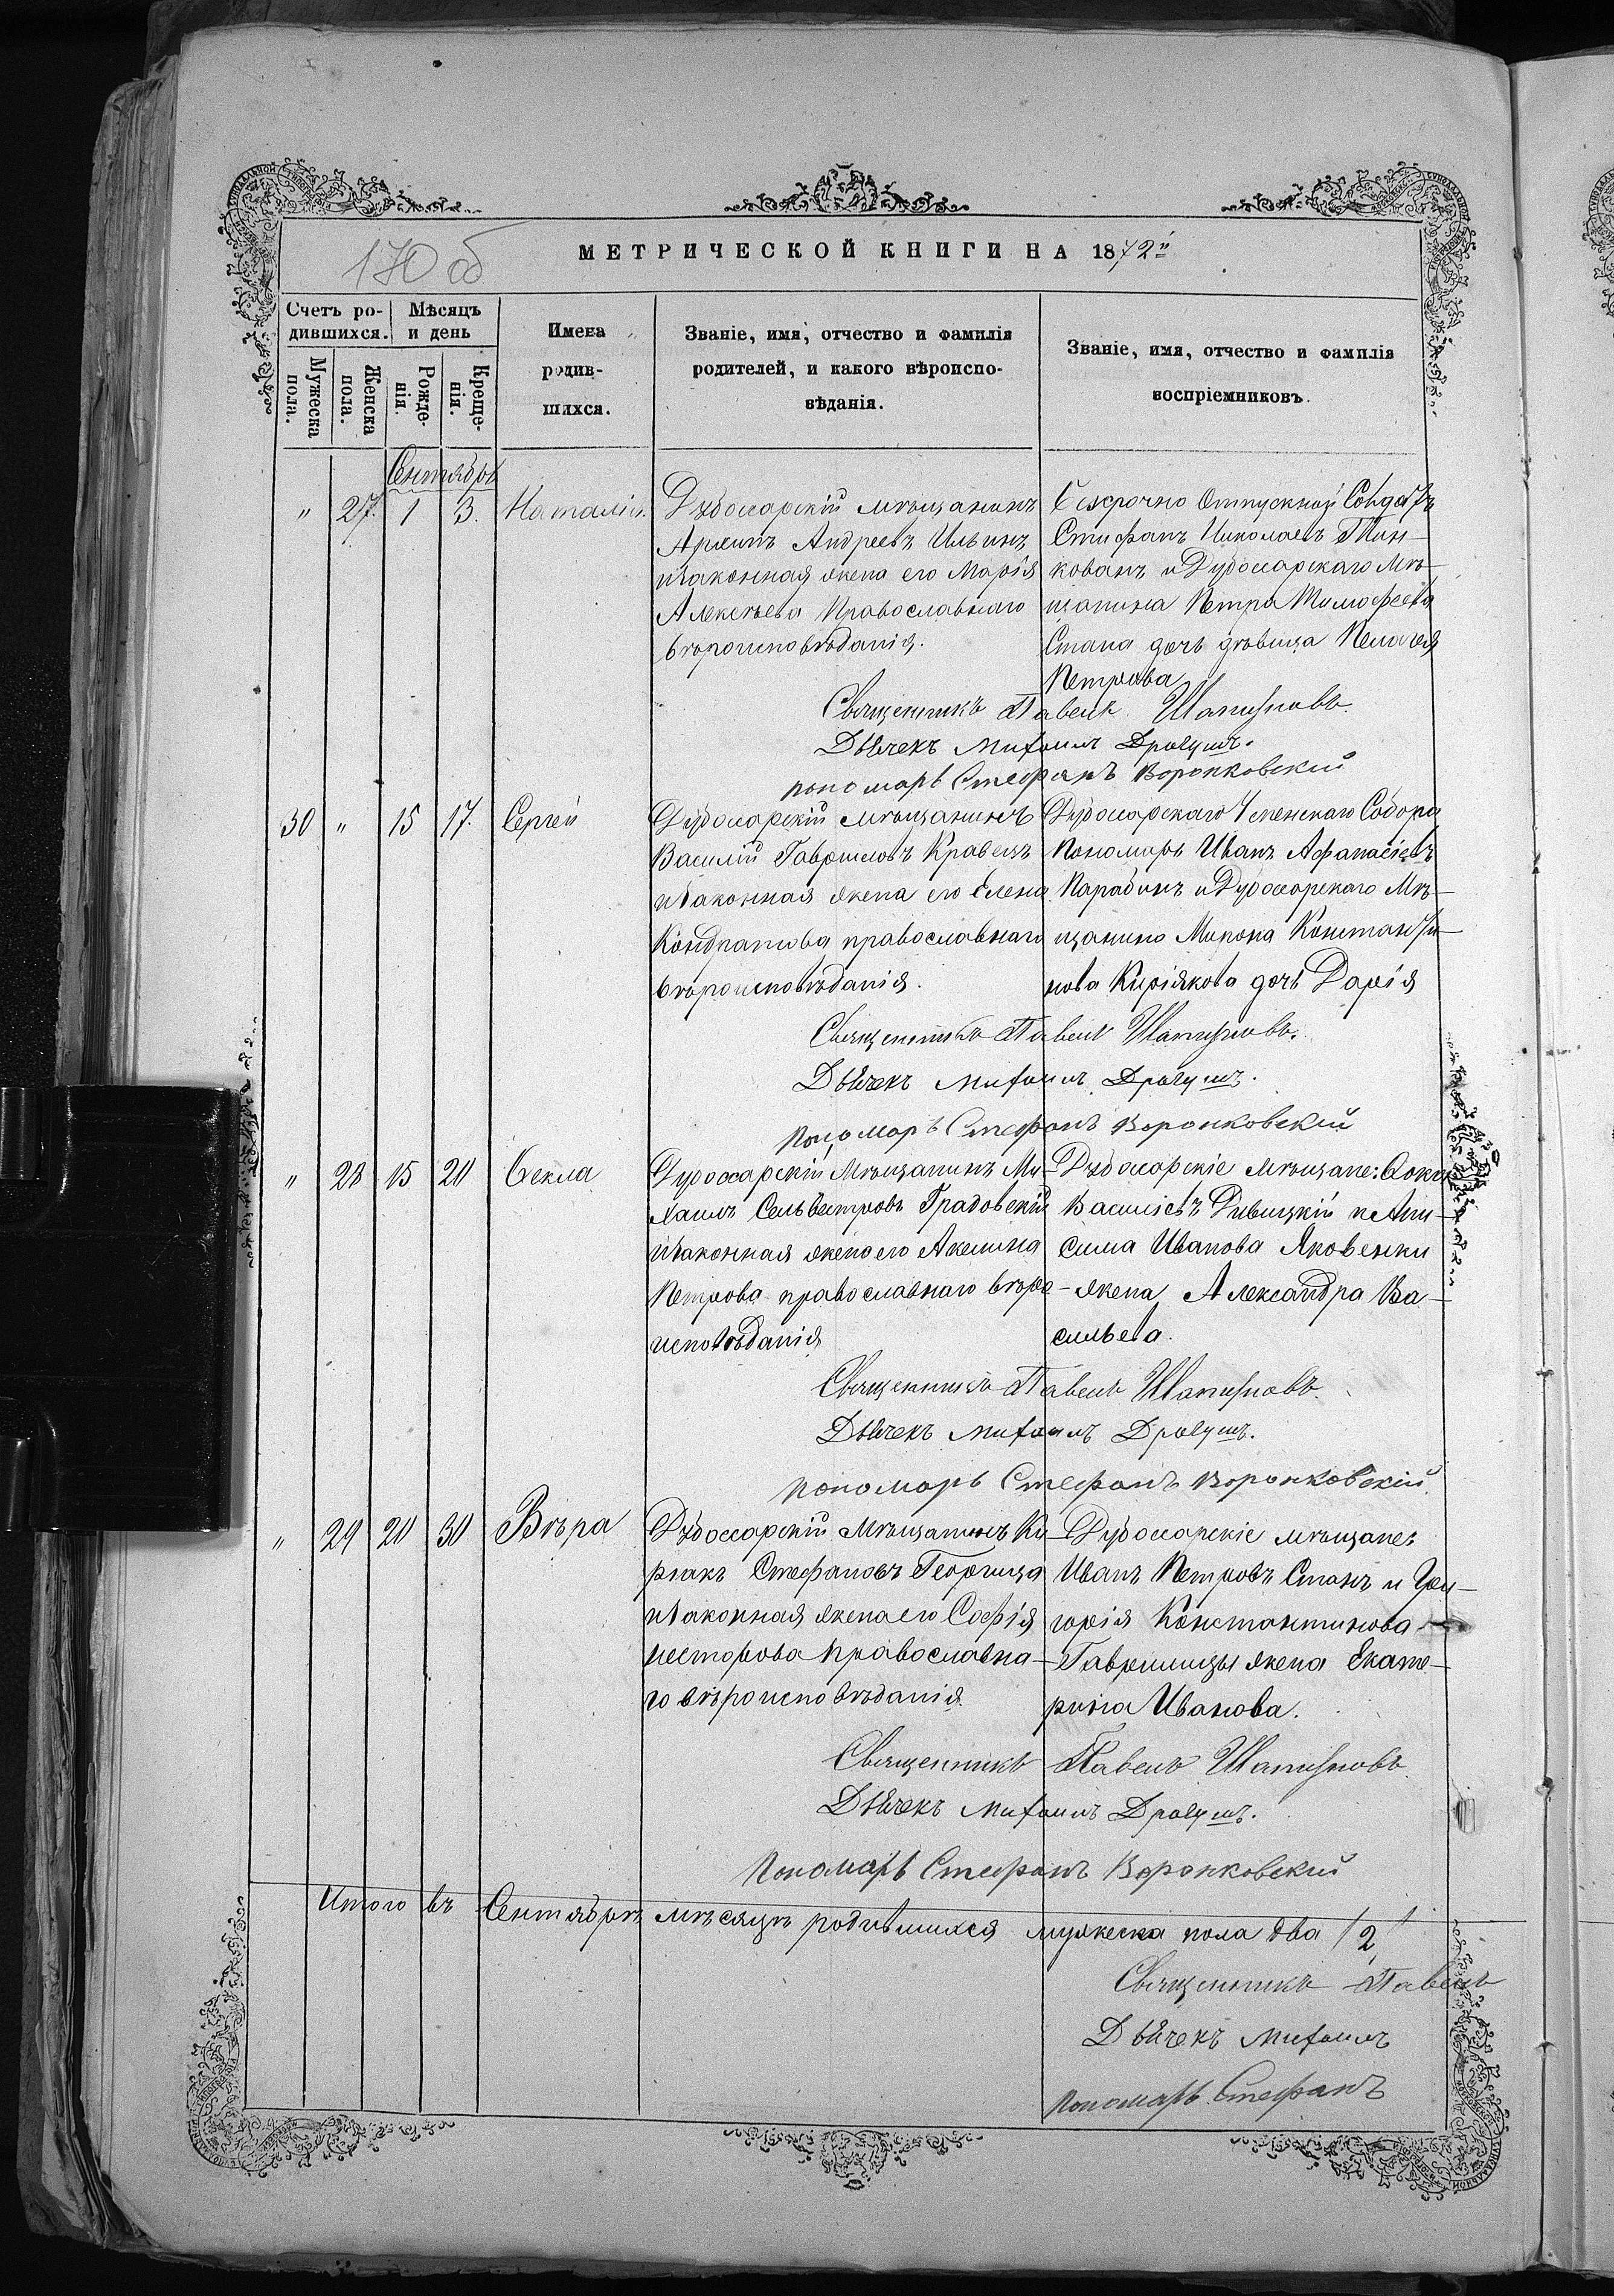 170 об
МЕТРИЧЕСКОЙ КНИГИ НА 1872й
Счетъ ро-
дившихся.
Мѣсяцъ
и день
Имена
родив-
шихся.
Званіе, имя, отчество и фамилія
родителей, и какого вѣроиспо-
вѣданія.
Званіе, имя, отчество и фамилія
воспріемниковъ.
Мужеска
пола.
Женска
пола.
Рожде-
нія.
Креще-
нія.
Сентябрь
" 27. 1 3. Наталія.
Дубоссарскій мѣщанинъ
Архипъ Андреевъ Ильинъ
и законная жена его Марія
Алексѣева Православнаго
вѣроисповѣданія.
Безсрочно Отпускной Солдатъ
Стефанъ Николаевъ
кованъ и Дубоссарскаго Мѣ-
щанина Петра Тимофеева
Стана дочь дѣвица Пелагея
Петрова
Священникъ Павелъ
Дьячекъ Михаилъ Драгушъ.
пономарь Стефанъ Воронковскій
30 " 15 17. Сергей
Дубоссарскій мѣщанинъ
Василій Гавриловъ Кравецъ
и законная жена его Елена
Кондратова православнаго
вѣроисповѣданія.
Дубоссарскаго Успенскаго Собора
Пономарь Иванъ Афанасіевъ
Парадинъ и Дубоссарскаго Мѣ-
щанина Мирона Константи-
нова Киріякова дочь Дарія
Священникъ Павелъ
Дьячекъ Михаилъ Драгушъ.
Пономарь Стефанъ Воронковскій
" 28 15 20 Ѳекла
Дубоссарскій Мѣщанинъ Ми-
хаилъ Сельвестровъ Градовскій
и законная жена его Акелина
Петрова православнаго вѣро-
исповѣданія
Дубоссарскіе мѣщане:
Василіевъ и Ани-
сима Иванова Яковенки
жена Александра Ва-
сильева.
Священникъ Павелъ
Дьячекъ Михаилъ Драгушъ.
пономарь Стефанъ Воронковскій
" 29 20 30 Вѣра
Дубоссарскій Мѣщанинъ Ки-
ріакъ Стефановъ Георгица
и законная жена его Софія
Несторова Православна-
го вѣроисповѣданія.
Дубоссарскіе мѣщане:
Иванъ Петровъ Станъ и Гри-
горія Константинова
Гаврилицы жена Екате-
рина Иванова.
Священникъ Павелъ
Дьячекъ Михаилъ Драгушъ.
Пономарь Стефанъ Воронковскій
Итого въ Сентябрѣ мѣсяцѣ родившихся мужеска пола два /2/
Священникъ Павелъ
Дьячекъ Михаилъ
пономарь Стефанъ